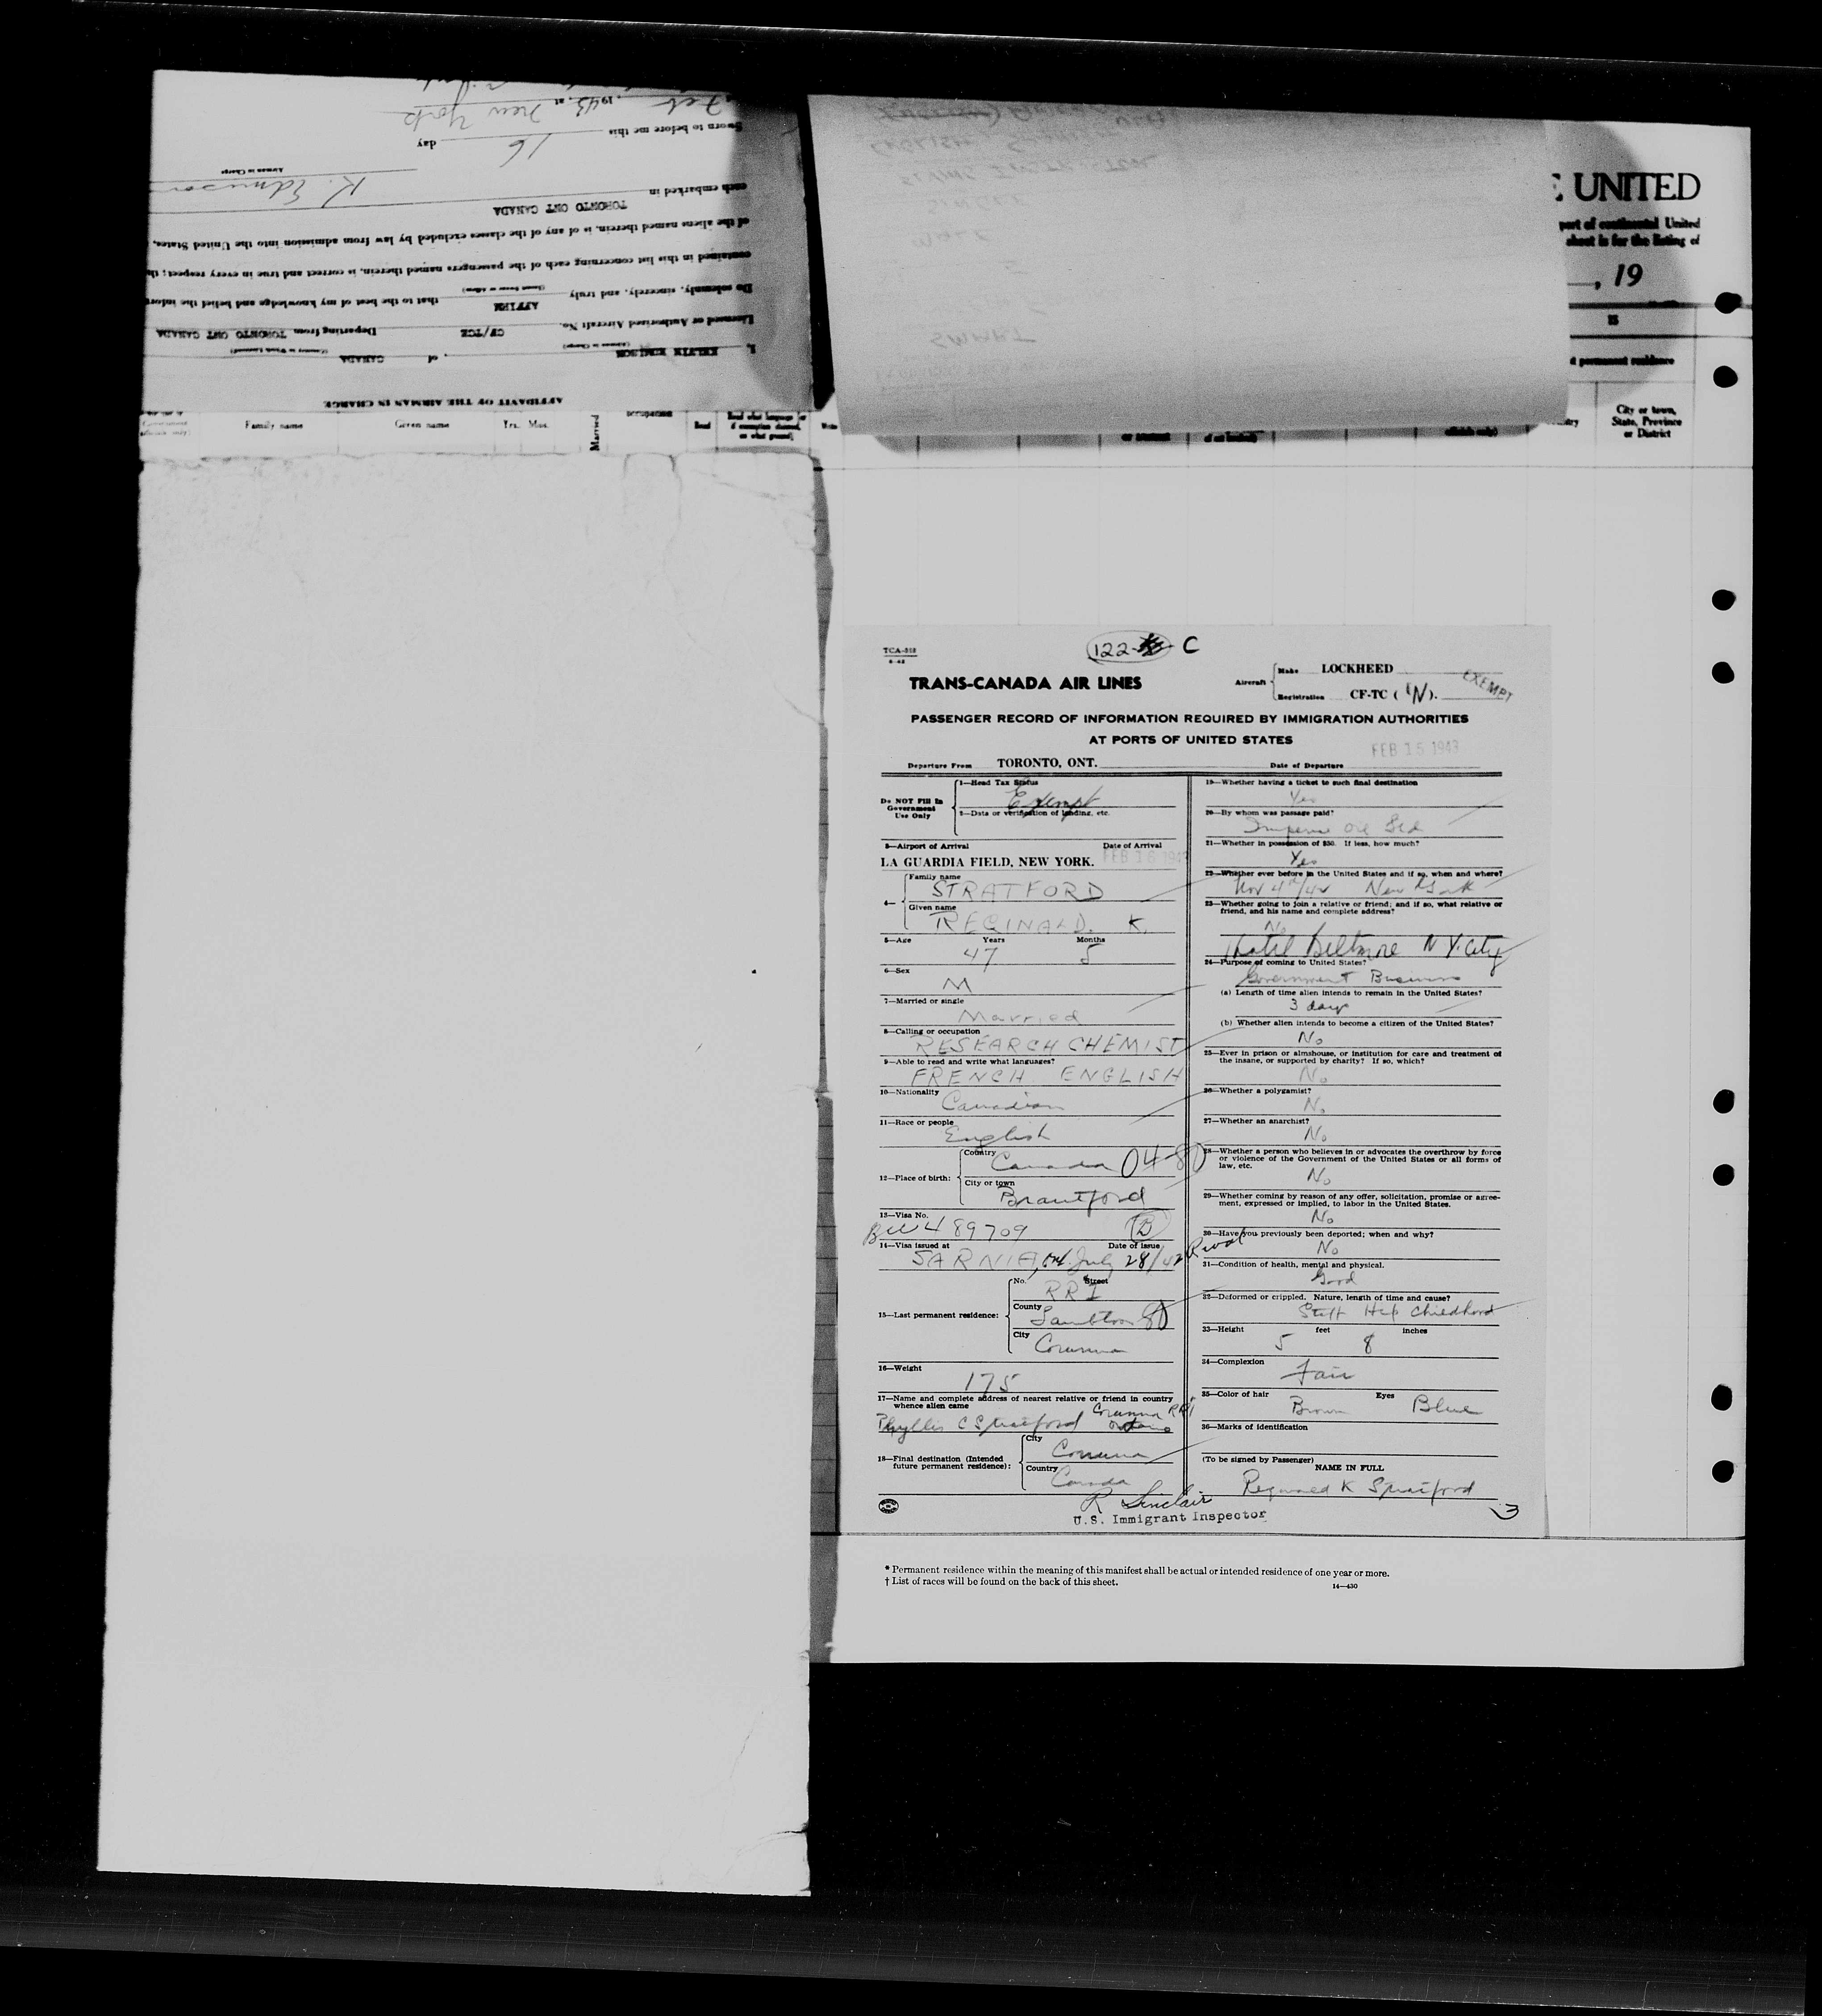 AFFIDAVIT OF THE AIRMAN IN CHARGE
I, KELVIN EDMISON of CANADA
(Airman in Charge) (Country in Which Licensed)
Licensed or Authorized Aircraft No. CF/TCZ Departing from TORONTO ONT CANADA
Do solemnly, sincerely, and truly AFFIRM that to the best of my knowledge and belief the infor
(Insert Swear or Affirm)
contained in this list concerning each of the passengers named therein, is correct and true in every respect; th
of the aliens named therein, is of any of the classes excluded by law from admission into the United States,
each embarked in TORONTO ONT CANADA
K. Edmison
Airman in Charge
Sworn to before me this 16 day
Feb, 1943, at New York
Family name Given name Yrs. Mos. Married Read
Read what language
if exemption claimed,
on what ground
SMART
MALE
SINGLE
ENGLISH
UNITED
part of continental United
sheet is for the listing of
, 19
15
t permanent residence
City or town,
State, Province
or District
TCA-312
122 C
TRANS-CANADA AIR LINES
Aircraft Make LOCKHEED
Registration CF-TC (N).
EXEMPT
PASSENGER RECORD OF INFORMATION REQUIRED BY IMMIGRATION AUTHORITIES
AT PORTS OF UNITED STATES
FEB 16 1943
Departure From TORONTO, ONT. Date of Departure
Do NOT Fill In
Government
Use Only
1—Head Tax Status
Exempt
2—Data or verification of landing, etc.
3—Airport of Arrival Date of Arrival
LA GUARDIA FIELD, NEW YORK. FEB 16 1943
4— Family name
STRATFORD
Given name
REGINALD. K.
5—Age Years Months
47 5
6—Sex
M
7—Married or single
Married
8—Calling or occupation
RESEARCH CHEMIST
9—Able to read and write what languages?
FRENCH ENGLISH
10—Nationality
Canadian
11—Race or people
English
12—Place of birth: Country
Canada 04-80
City or town
Brantford
13—Visa No.
489709 (B)
14—Visa issued at Date of Issue
SARNIA, Ont. July 28/42
15—Last permanent residence: No. Street
RR 1
County
Lambton
City
Corunna
16—Weight
175
17—Name and complete address of nearest relative or friend in country
whence alien came
Phyllis C Stratford Corunna RR1
Ontario
18—Final destination (Intended
future permanent residence): City
Corunna
Country
Canada
19—Whether having a ticket to such final destination
Yes
20—By whom was passage paid?
Imperial Oil Ltd
21—Whether in possession of $50. If less, how much?
Yes
22—Whether ever before in the United States and if so, when and where?
Nov 4th/42 New York
23—Whether going to join a relative or friend; and if so, what relative or
friend, and his name and complete address?
No
Hotel Biltmore N Y. City
24—Purpose of coming to United States?
Government Business
(a) Length of time alien intends to remain in the United States?
3 days
(b) Whether alien intends to become a citizen of the United States?
No
25—Ever in prison or almshouse, or institution for care and treatment of
the insane, or supported by charity? If so, which?
No
26—Whether a polygamist?
No
27—Whether an anarchist?
No
28—Whether a person who believes in or advocates the overthrow by force
or violence of the Government of the United States or all forms of
law, etc.
No
29—Whether coming by reason of any offer, solicitation, promise or agree-
ment, expressed or implied, to labor in the United States.
No
30—Have you previously been deported; when and why?
No
31—Condition of health, mental and physical.
Good
32—Deformed or crippled. Nature, length of time and cause?
Stiff Hip Childhood
33—Height feet inches
5 8
34—Complexion
Fair
35—Color of hair Eyes
Brown Blue
36—Marks of identification
(To be signed by Passenger)
NAME IN FULL
Reginald K Stratford
R Sinclair
U.S. Immigrant Inspector
3
* Permanent residence within the meaning of this manifest shall be actual or intended residence of one year or more.
† List of races will be found on the back of this sheet.
14—430